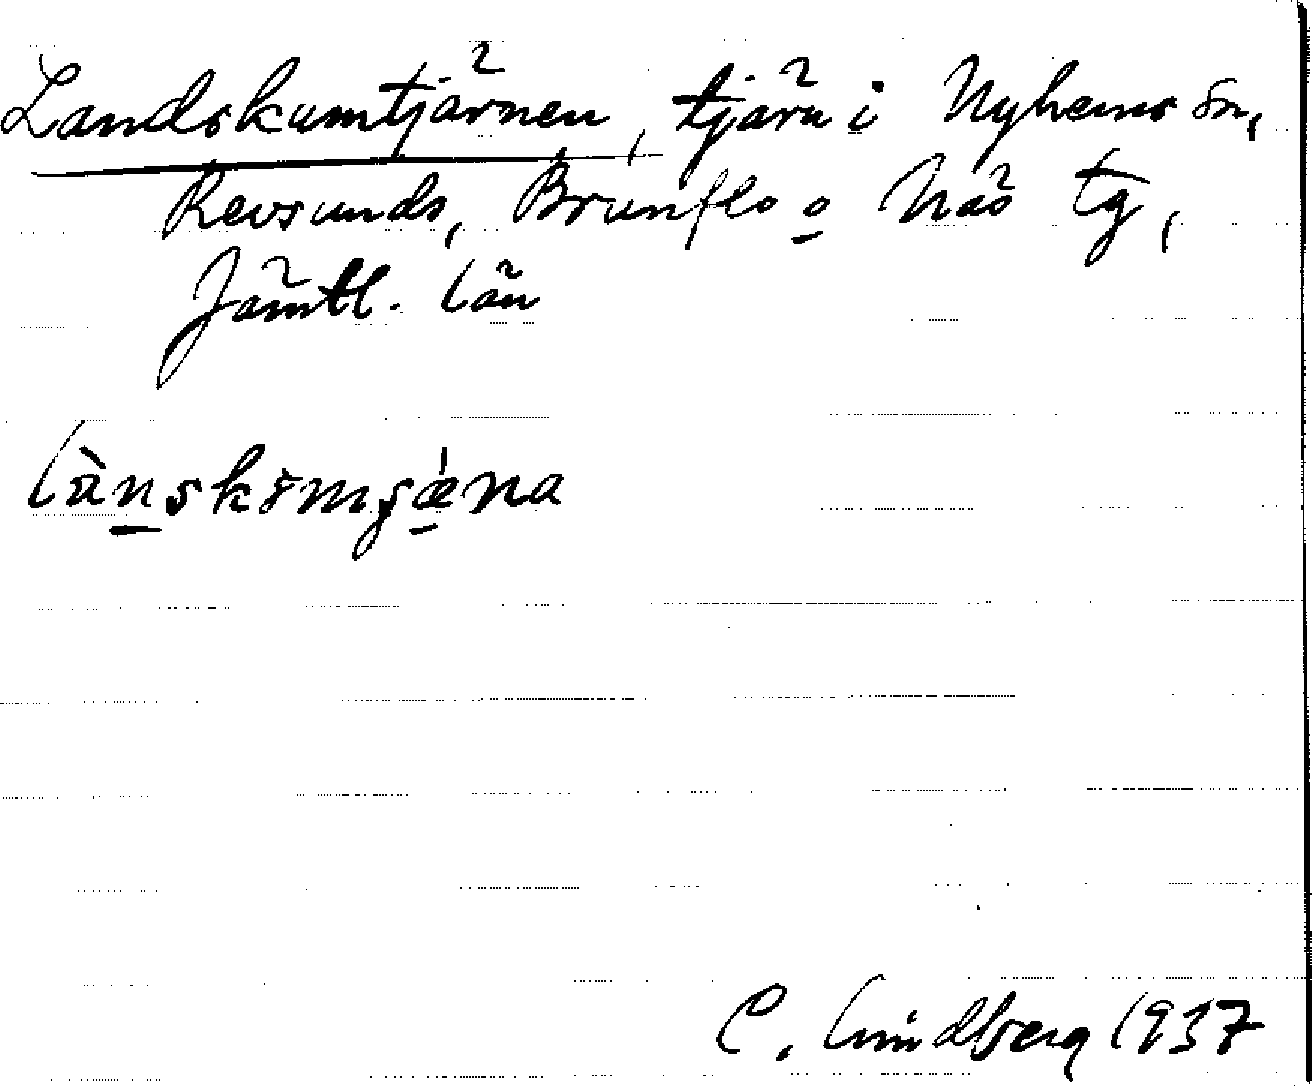 Landskumtjärnen, tjärn i Nyhems sn,
Revsunds, Brunflo o Näs tg,
Jämtl. län
C. Lindberg 1937